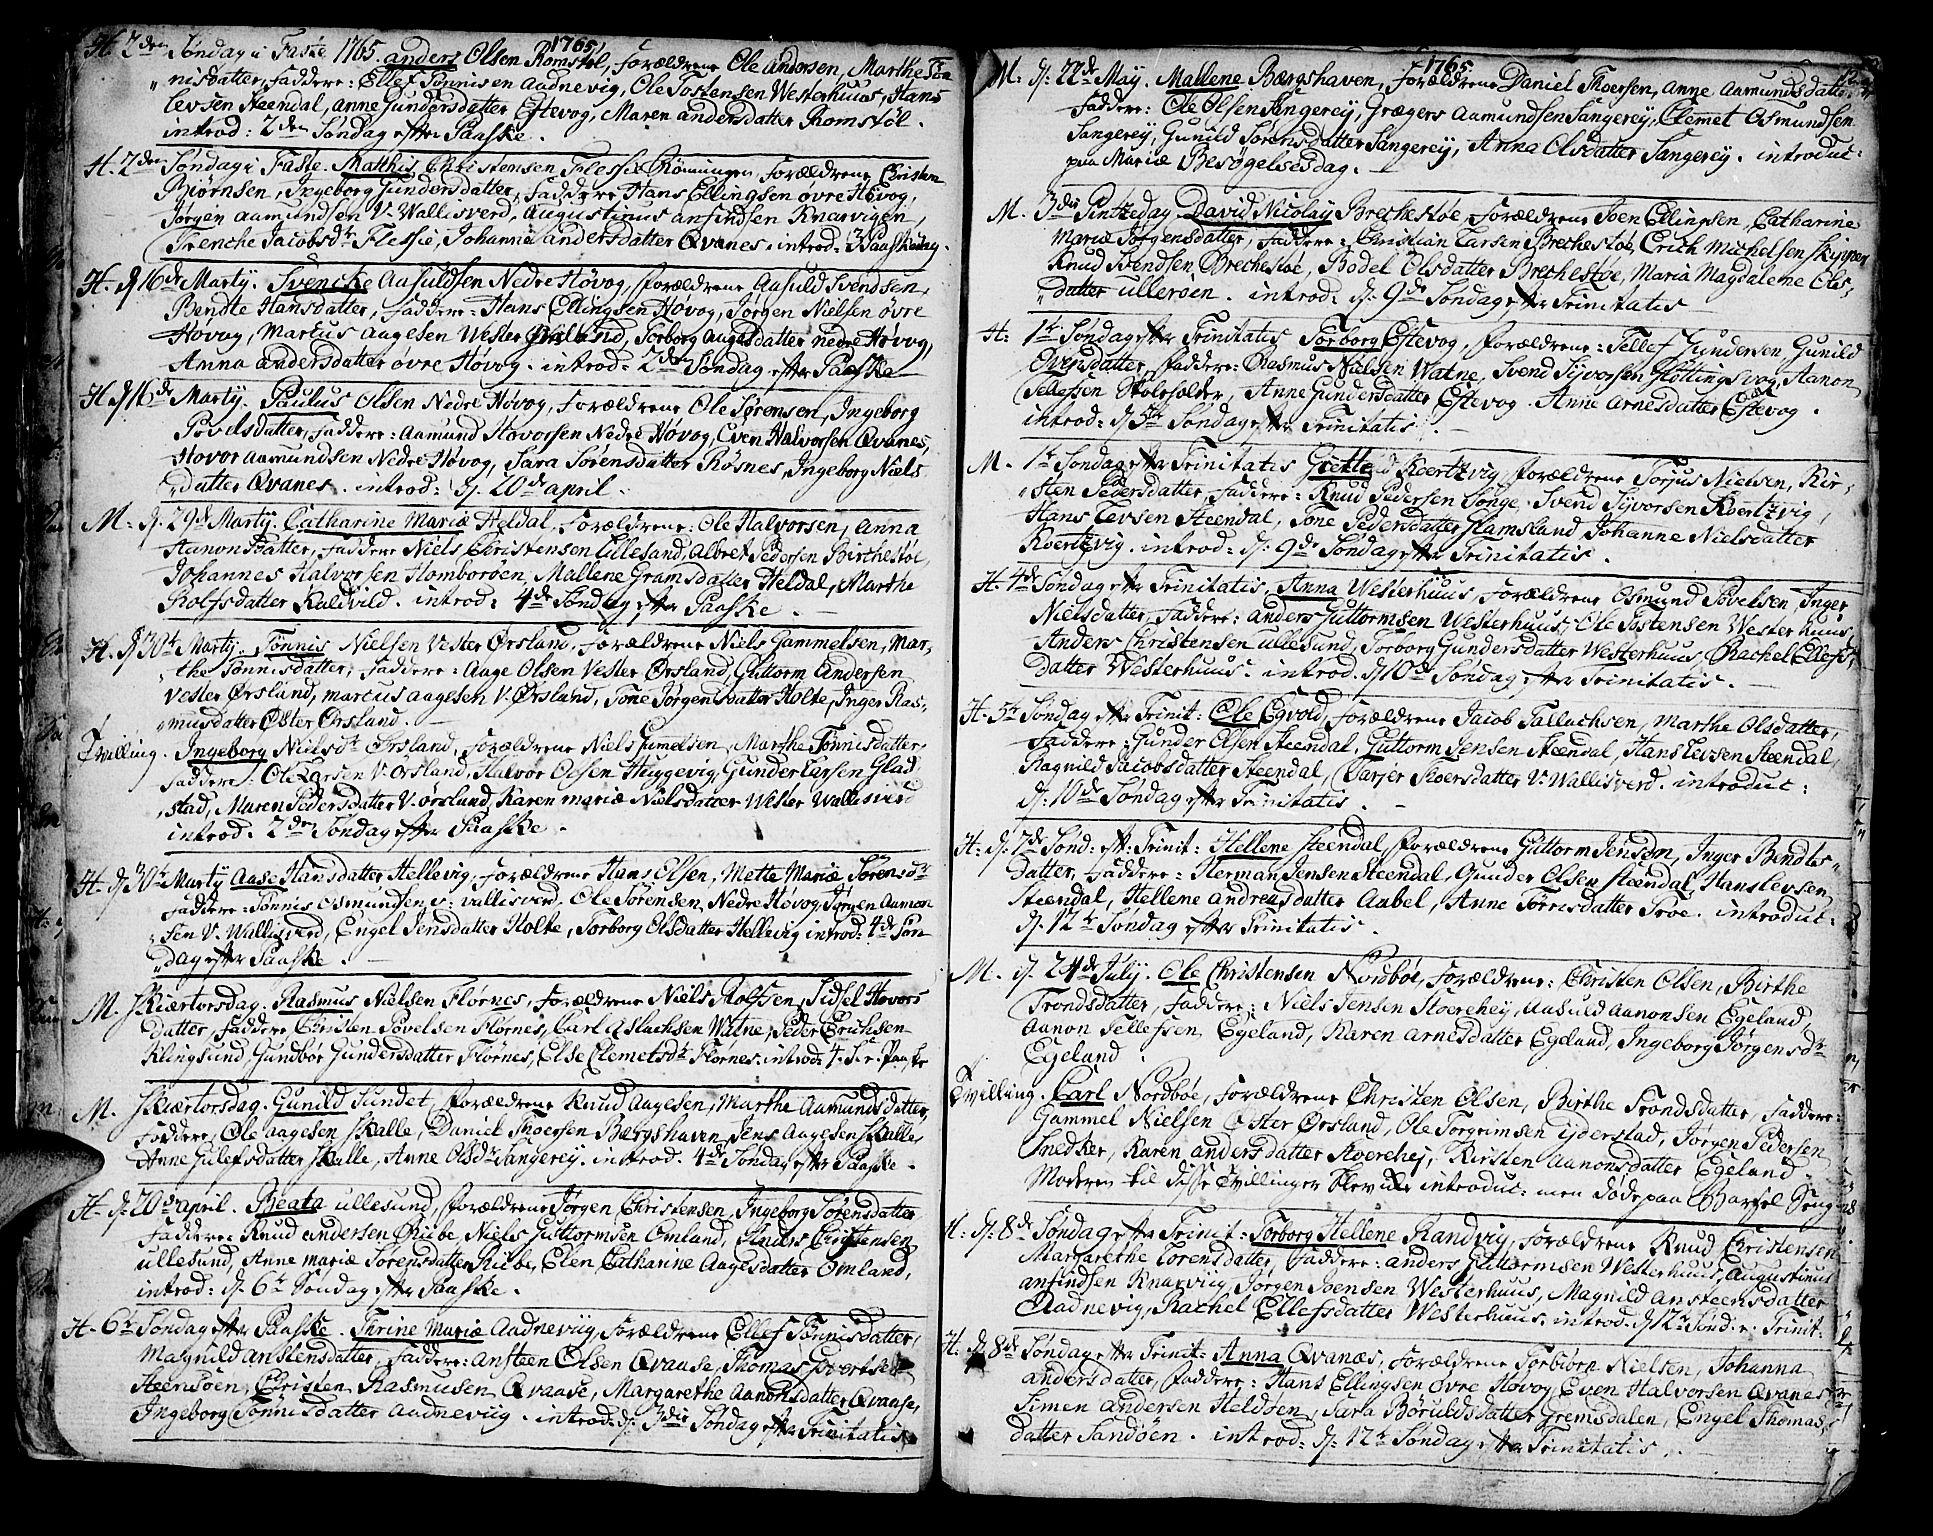 1765
H. 2den Søndag i Faste 1765. anders Olsen Romstøl, Forældrene Ole Andersen, Marthe Tøn-
nisdatter, Faddere: Ellef Tønnisen Aadnevig, Ole Tostensen Westerhuus, Hans
Levsen Steendal, Anne Gundersdatter Estevog, Maren Andersdatter Romstøl.
introd: 2den Søndag efter Paaske.
H. 2den Søndag i Faste. Matthis Christensen Flessie Rønningen, Forældrene Christen
Biørnsen, Ingeborg Gundersdatter, Faddere Hans Ellingsen øvre Høvog,
Jørgen Aamundsen V. Wallisverd, Augustinus Ansindsen Knarvigen,
Trenche Jacobsdr Flessie, Johanne Andersdatter Qvanes. introd: 3 Paaskedag.
H. d. 16de Martij. Svencke Aasuldsen Nedre Høvog, Forældrene Aasuld Svendsen,
Bendte Hansdatter, Faddere: Hans Ellingsen Høvog, Jørgen Nielsen øvre
Høvog, Marcus Aagesen Wester Ørsland, Torborg Aagesdatter nedre Høvog,
Anna Andersdatter øvre Høvog. introd: 2den Søndag efter Paaske
H. d. 16de Martij. Paulus Olsen Nedre Høvog, Forældrene Ole Sørensen, Ingeborg
Povelsdatter, Faddere: Aamund Hovorsen Nedre Høvog, Even Halvorsen Qvanes,
Hovor Aamundsen Nedre Høvog, Sara Sørensdatter Røsnes, Ingeborg Niels-
datter Qvanes. introd: d. 20de april.
M. d. 29de Martij. Catharine Marie Heldal, Forældrene: Ole Halvorsen, Anna
Aanonsdatter, Faddere Niels Christensen Lillesand, Albret Pedersen Birchestøe,
Johannes Halvorsen Homborøen, Mallene Gramsdatter Heldal, Marthe
Rolfsdatter Kaldvild. introd: 4de Søndag efter Paaske.
H. d. 30te Martij. Tønnis Nielsen Vester Ørsland, Forældrene Niels Gammelsen, Mar-
the Tønnisdatter, Faddere: Aage Olsen Vester Ørsland, Guttorm Andersen
Vester Ørsland, Marcus Aagesen V. Ørsland, Tone Jørgensdatter Holte, Inger Ras-
musdatter Øster Ørsland.
Tvilling. Ingeborg Nielsdr Ørsland, Forældrene Niels Gumelsen, Marthe Tønnisdatter,
Faddere: Ole Larsen V. Ørsland, Halvor Olsen Huggevig, Gunder Larsen Glad
stad, Maren Pedersdatter V. ørslund, Karen marie Nielsdatter Wester Wallisverd
introd. 2den Søndag efter Paaske.
H. d. 30te Martij Aase Hansdatter Hellevig, Forældrene Hans Olsen, Mette Marie Sørensdr
Faddere: Tønnis Osmundsen v: vallisverd, Ole Sørensen, Nedre Høvog, Jørgen Aamon
sen V. Wallisverd, Engel Jensdatter Holte, Torborg Olsdatter Hellevig introd: 4de Søn
dag efter Paaske.
M. Skiærtorsdag. Rasmus Nielsen Flørnes, Forældrene Niels Rolfsen, Sidsel Hovors
datter, Faddere Christen Povelsen Flørnes, Carl Aslachsen Watne, Peder Erichsen
Klingsund, Gundbor Gundersdatter Flørnes, Else Clemetsdr Flørnes. introd: 4. S. e. Paaske
M. Skiærtorsdag. Gunild Sundet, Forældrene Knud Aagesen, Marthe Aamundsdatter,
Faddere, Ole Aagesen Skalle, Daniel Thoersen Bærgshaven, Jens Aagesen Skalle,
Anne Gulefsdatter Skalle, Anne Olsdr Sangerej. introd. 4de Søndag efter Paaske.
H. d: 20de april. Beata ullesund, Forældrene Jørgen Christensen, Ingeborg Sørensdatter
Faddere: Knud Andersen Ribe, Niels Guttormsen Omland, Anders Christensen
ullesund, Anne marie Sørensdatter Ribe, Elen Catharine Aagesdatter Omland,
introd: d. 6te Søndag efter Paaske.
H. 6te Søndag efter Paaske. Thrine Marie Aadneviig, Forældrene Ellef Tønnisdatter,
Magnild anstensdatter, Faddere: Ansteen Olsen Qvaase, Thomas Govertsen
Steensøen, Christen Rasmusen Qvaase, Margarethe Aanonsdatter Qvaase,
Ingeborg Tønnisdatter Aadneviig. introd: d. 3die Søndag efter Trinitatis
1765
M: d: 22de May. Mallene Bærgshaven, Forældrene Daniel Thoersen, Anne Aamundsdatter
Faddere: Ole Olsen Sangerej, Grægers Aamundsen Sangerej, Clemet Osmundsen
Sangerej, Gunild Sørensdatter Sangerej, Anna Olsdatter Sangerej. introduc:
paa Mariæ Besøgelsesdag.
M. 3die Pintzedag. David Nicolay Brechestøe, Forældrene Joen Ellingsen, Catharine
Marie Jørgensdatter, Faddere: Christian Larsen Brechestøe, Erich Michelsen Skipper
Knud Svendsen Brechestøe, Bodel Olsdatter Brechestøe, Maria Magdalene Ols-
datter ullerøen. introd: d: 9de Søndag efter Trinitatis
H: 1te Søndag efter Trinitatis Torborg Estevog, Forældrene: Tellef Gundersen, Gunild
Oversdatter, Faddere: Rasmus Nielsen Watne, Svend Syvorsen Glottingsvog, Aanon
Tellefsen Skoleholder, Anne Gundersdatter Estevog. Anne Arnesdatter Estevog.
introd: d. 5te Søndag efter Trinitatis.
M. 1te Søndag efter Trinitatis Grette Koertzvig, Forældrene Torjus Nielsen, Kir-
sten Pedersdatter, Faddere: Knud Pedersen Songe, Svend Syvorsen Koertzvig,
Hans Levsen Steendal, Tone Pedersdatter Hamsland Johanne Nielsdatter
Koertzvig. introd: d: 9de Søndag efter Trinitatis.
H. 4de Søndag efter Trinitatis, Anna Westerhuus, Forældrene Osmund Povelsen, Inger
Nielsdatter, Faddere: Anders Guttormsen Westerhuus, Ole Tostensen Westerhuus,
Anders Christensen ullesund, Torborg Gundersdatter Westerhuus, Rachel Ellefs-
datter Westerhuus. introd. d. 10de Søndag efter Trinitatis.
H. 5te Søndag efter Trinit: Ole Egvold, Forældrene Jacob Tallachsen, Marthe Olsdatter,
Faddere: Gunder Olsen Steendal, Guttorm Jensen Steendal, Hans Levsen Steendal,
Ragnild Jacobsdatter Steendal, Tarjer Thoersdatter V. Wallisverd. introduc:
d: 10de Søndag efter Trinitatis.
H. d. 7de Sønd: eft: Trinit: Hellene Steendal, Forældrene Guttorm Jensen, Inger Bendtes-
datter, Faddere: Herman Jensen Steendal, Gunder Olsen Steendal, Hans Levsen
Steendal, Hellene Andreasdatter Aabel, Anne Tørrisdatter Troe. introduct:
d. 12te Søndag efter Trinitatis.
M. d. 24de Julij. Ole Christensen Nordbøe, Forældrene: Christen Olsen, Birthe
Trondsdatter, Faddere: Niels Jensen Stoerehej, Aasuld Aanonsen Egeland
Aanon Tellefsen Egeland, Karen Arnesdatter Egeland, Ingeborg Jørgensdr
Egeland.
Tvilling. Carl Nordbøe, Forældrene Christen Olsen, Birthe Trondsdatter, Faddere:
Gammel Nielsen Øster Ørsland, Ole Torgrimsen ijderstad, Jørgen Pedersen
Snedker, Karen Andersdatter Stoerehej, Kirsten Aanonsdatter Egeland
Moderen til disse Tvillinger blev icke introduc: men døde paa Barsel Seng
H: d. 8de Søndag efter Trinit: Torborg Hellene Randvig, Forældrene Knud Christensen
Margarethe Torensdatter, Faddere: Anders Guttormsen Westerhuus, Augustinus
Ansindsen Knarviig, Jørgen Joensen Westerhuus, Magnild Ansteensdatter
Aadnevig, Rachel Ellefsdatter Westerhuus, introd. d. 12te Sønd: e: Trinit:
H. d. 8de Søndag efter Trinit: Anna Qvanæs, Forældrene Torbiørn Nielsen, Johanna
Andersdatter, Faddere: Hans Ellingsen Øvre Høvog, Even Halvorsen Qvanes
Simen Andersen Heldsen, Sara Børuldsdatter Gremsdalen, Engel Thomas-
datter Sandøen. introd: d: 12te Søndag efter Trinitatis.